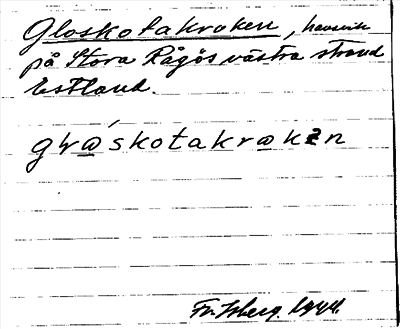 Gloskotakroken, havsvik
på Stora Rågös västra strand
Estland.
glåskotakrokən
Fr. Isberg 1944.